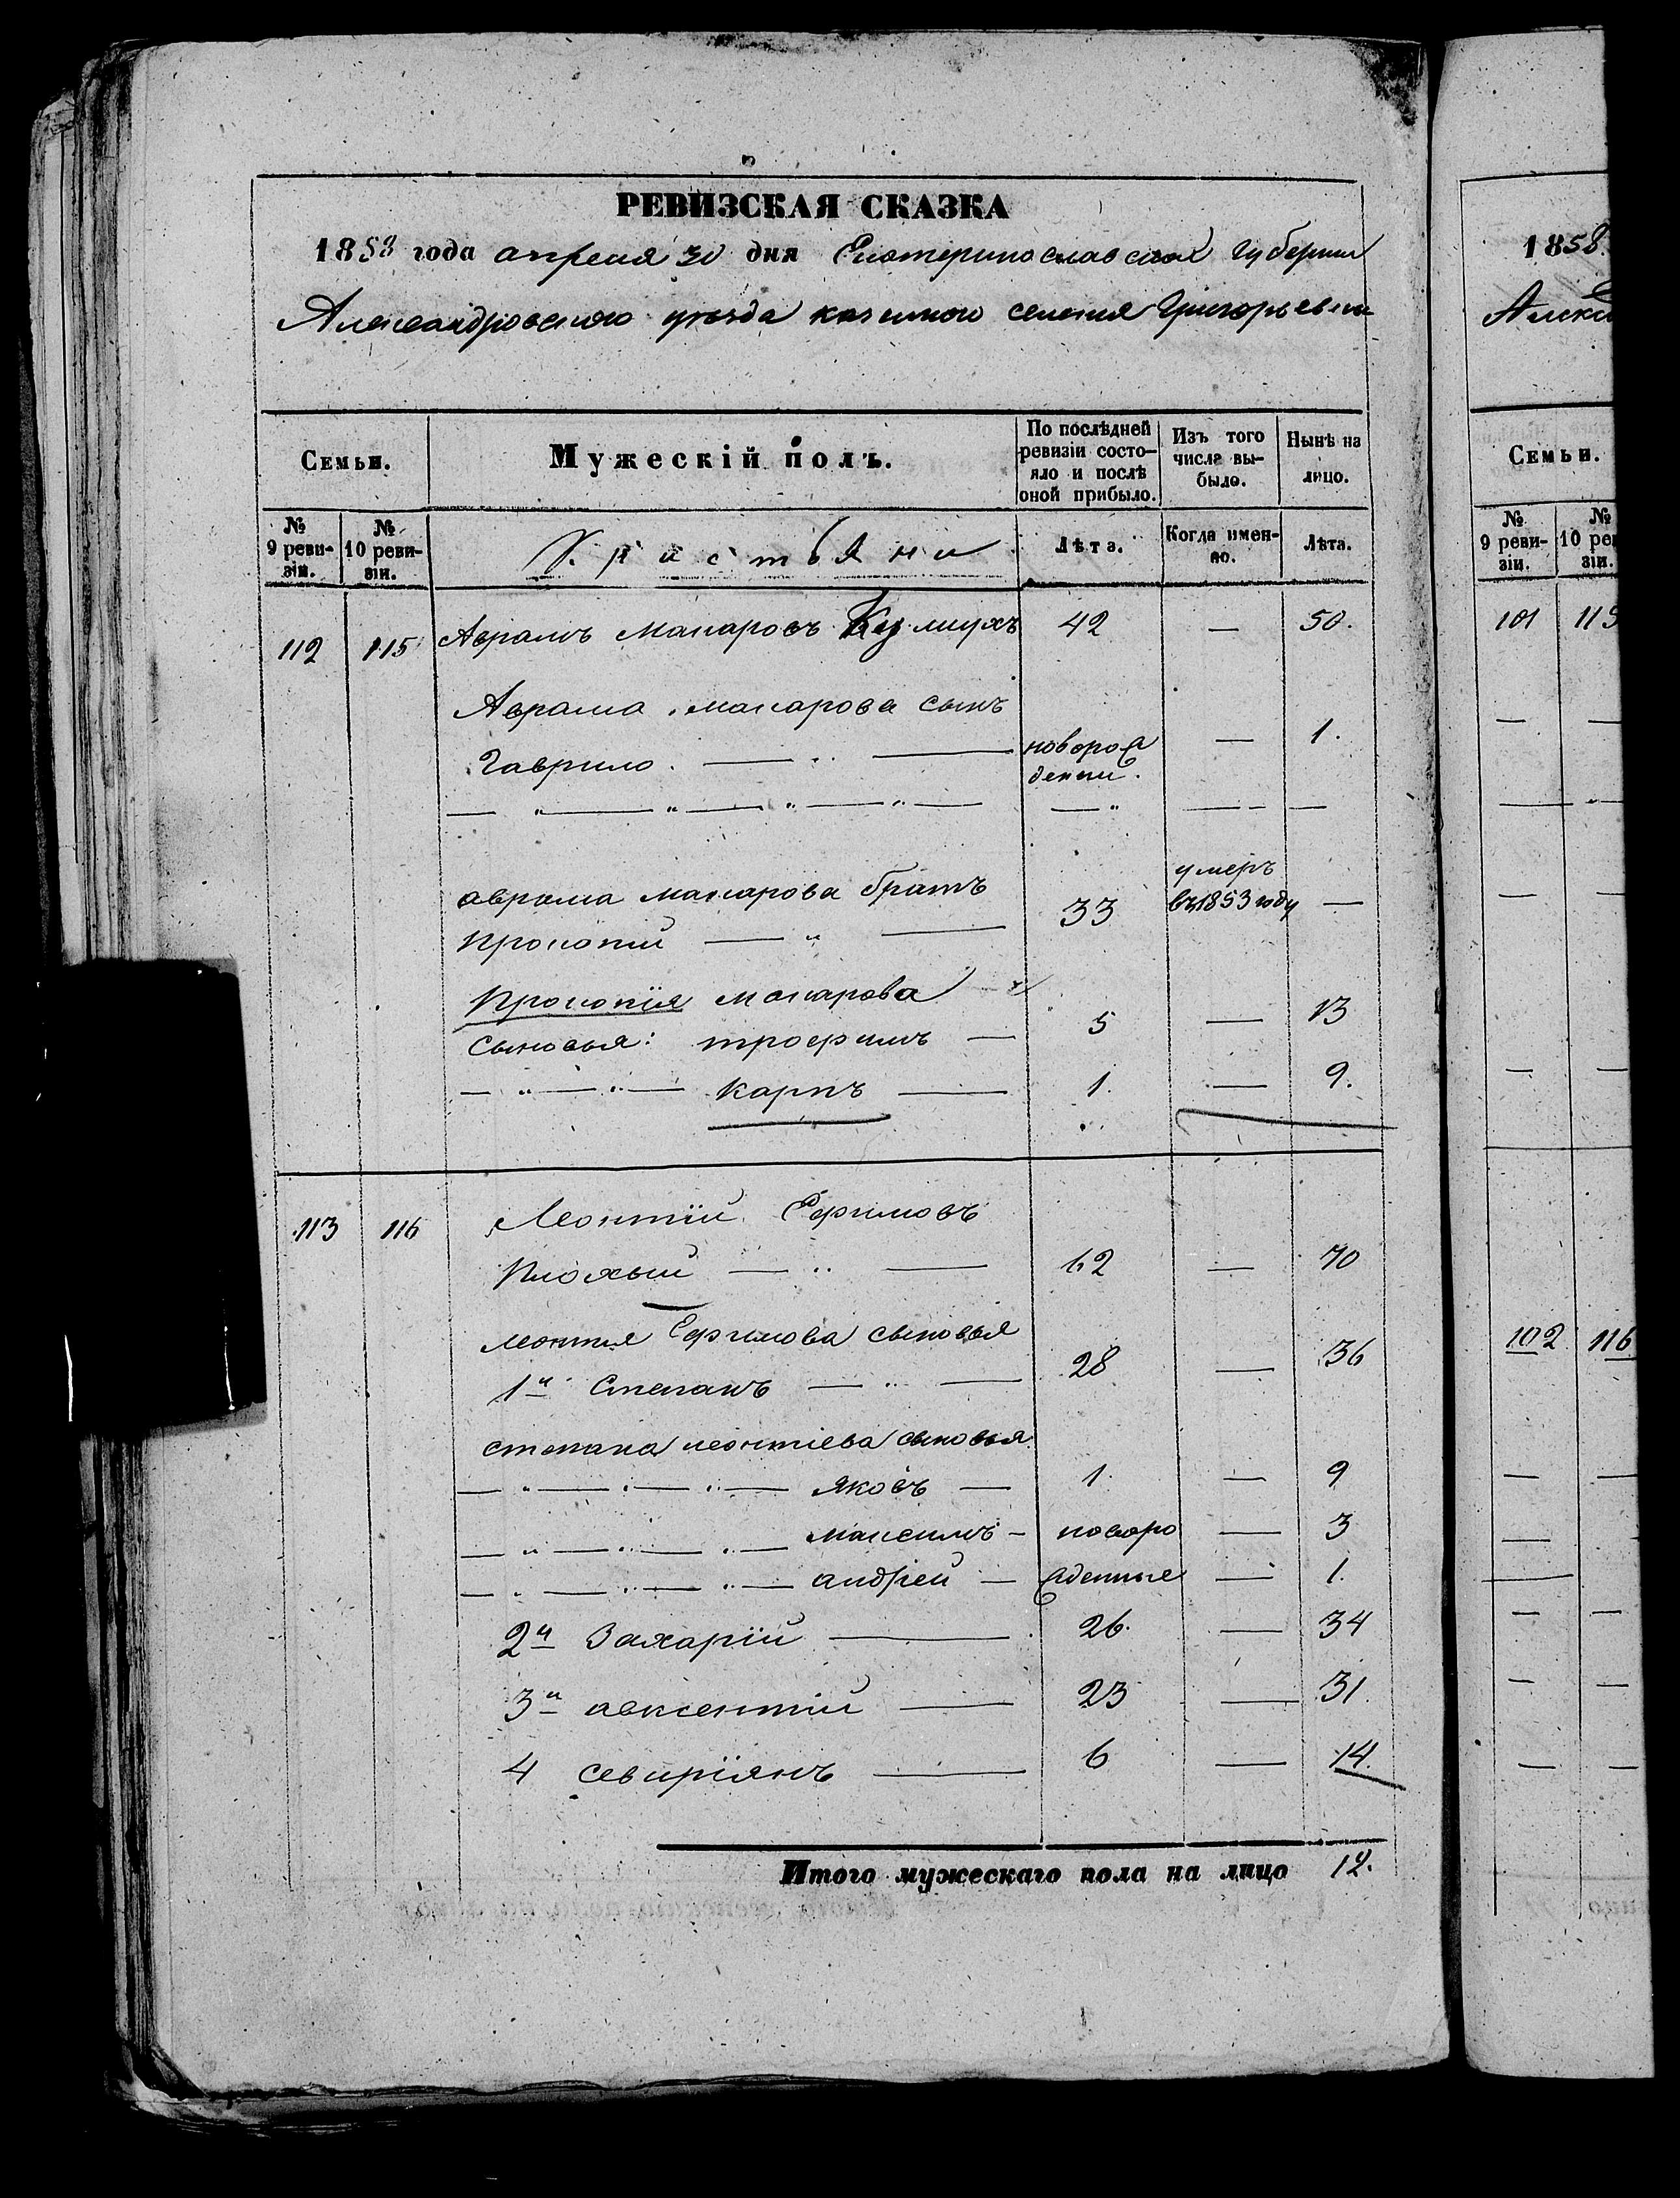 РЕВИЗСКАЯ СКАЗКА
1858 года апреля 30 дня Екатеринославской губернии
Александровского уезда казенного селения Григорьевки
Семьи.
Мужескій полъ.
По послѣдней ревизіи состо-
яло и послѣ
оной прибыло.
Изъ того
числа вы-
было.
Нынѣ на
лицо.
№
9 реви-
зіи.
№
10 реви-
зіи.
Крестьяни
Лѣта.
Когда имен-
но.
Лѣта.
112 115 Аврамъ Макаровъ 42 — 50.
Аврама Макарова сынъ
Гаврило. — „ — новорож
денни. — 1.
аврама макарова братъ
прокопий — „ — 33 умеръ
въ 1853 году —
прокопія макарова
сыновья: трофимъ — 5 — 13
— „ — „ — карпъ — 1. — 9.
113 116 Леонтій Ефимовъ
Плохый — „ — 62 — 70
леонтия Ефимова сыновья
1й Степанъ — „ — 28 — 36
степана леонтіева сыновья
— „ — „ — „ — яковъ — 1. — 9
— „ — „ — „ — максимъ — новоро — 3
— „ — „ — „ — андрей — жденные — 1.
2й Захарій — 26. — 34
3й авксентій — 23 — 31.
4 севиріянъ — 6 — 14.
Итого мужескаго пола на лицо 12.
1858.
Алекса
Семьи.
№
9 реви-
зіи.
№
10 ре
зіи.
101 115
102 116